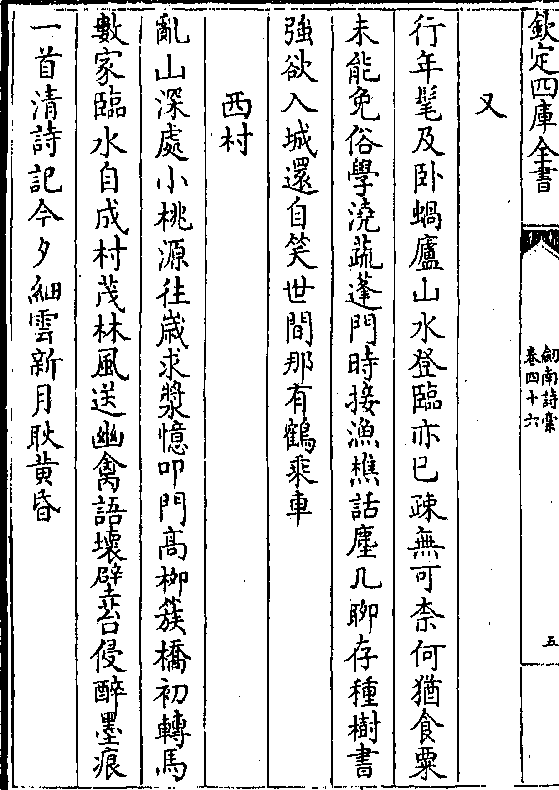 欽定四庫全書
劒南詩稾
卷四十六
五
又
行年髦及卧蝸廬山水登臨亦已疎無可柰何猶食粟
未能免俗學澆蔬蓬門時接漁樵話塵几聊存種樹書
強欲入城還自笑世間那有鶴乘車
西村
亂山深處小桃源往嵗求漿憶叩門髙柳簇橋初轉馬
數家臨水自成村茂林風送幽禽語壊壁苔侵醉墨痕
一首清詩記今夕細雲新月耿黄昏